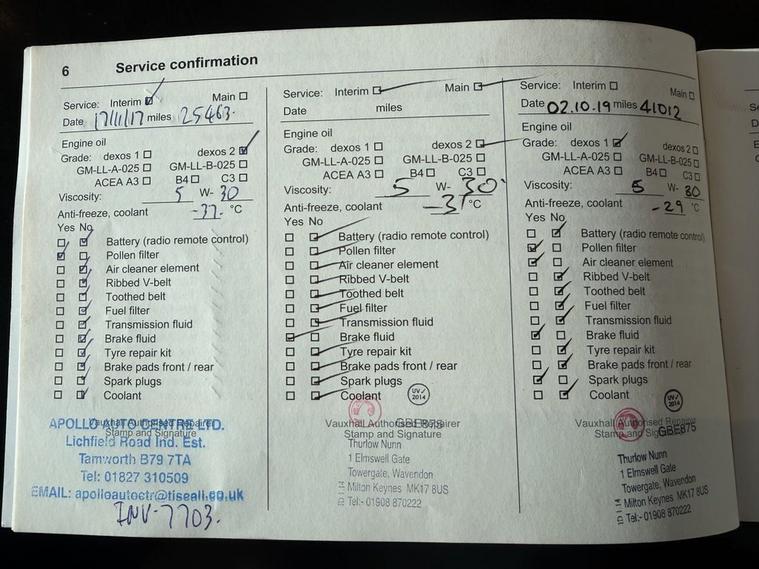 6 Service confirmation
Service: Interim Main
Date 17/11/17 miles 25463.
Engine oil
Grade: dexos 1 dexos 2
GM-LL-A-025 GM-LL-B-025
ACEA A3 B4 C3
Viscosity: 5 W- 30
Anti-freeze, coolant -37. °C
Yes No
Battery (radio remote control)
Pollen filter
Air cleaner element
Ribbed V-belt
Toothed belt
Fuel filter
Transmission fluid
Brake fluid
Tyre repair kit
Brake pads front / rear
Spark plugs
Coolant
Vauxhall Authorised Repairer
Stamp and Signature
APOLLO AUTO CENTRE LTD.
Lichfield Road Ind. Est.
Tamworth B79 7TA
Tel: 01827 310509
EMAIL: apolloautoctr@tiseali.co.uk
INV-7703.
Service: Interim Main
Date miles
Engine oil
Grade: dexos 1 dexos 2
GM-LL-A-025 GM-LL-B-025
ACEA A3 B4 C3
Viscosity: 5 W- 30
Anti-freeze, coolant -37 °C
Yes No
Battery (radio remote control)
Pollen filter
Air cleaner element
Ribbed V-belt
Toothed belt
Fuel filter
Transmission fluid
Brake fluid
Tyre repair kit
Brake pads front / rear
Spark plugs
Coolant
UV
2014
Vauxhall Authorised Repairer
GBE875
Stamp and Signature
Thurlow Nunn
1 Elmswell Gate
Towergate, Wavendon
Milton Keynes MK17 8US
Tel:- 01908 870222
Service: Interim Main
Date 02.10.19 miles 41012
Engine oil
Grade: dexos 1 dexos 2
GM-LL-A-025 GM-LL-B-025
ACEA A3 B4 C3
Viscosity: 5 W- 30
Anti-freeze, coolant -29 °C
Yes No
Battery (radio remote control)
Pollen filter
Air cleaner element
Ribbed V-belt
Toothed belt
Fuel filter
Transmission fluid
Brake fluid
Tyre repair kit
Brake pads front / rear
Spark plugs
Coolant
UV
2014
Vauxhall Authorised Repairer
Stamp and Signature
GBE875
Thurlow Nunn
1 Elmswell Gate
Towergate, Wavendon
Milton Keynes MK17 8US
Tel:- 01908 870222